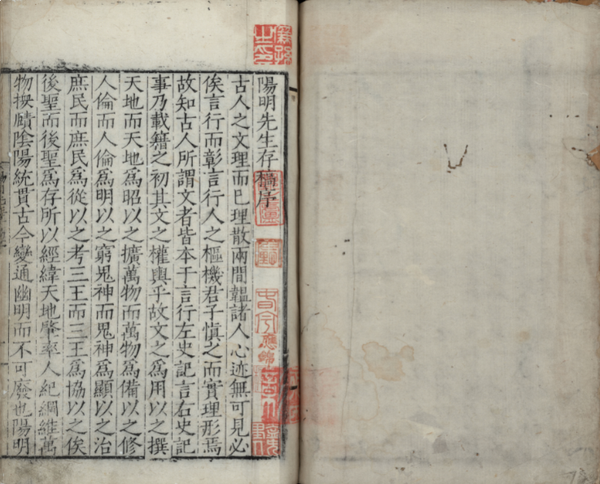 陽明先生存稿序
古人之文理而已理散兩間韞諸人心迹無可見必
俟言行而彰言行人之樞機君子慎之而實理形焉
故知古人所謂文者皆本于言行左史記言右史記
事乃載籍之初其文之權輿乎故文之為用以之撰
天地而天地為昭以之擴萬物而萬物為備以之修
人倫而人倫為明以之窮鬼神而鬼神為顯以之治
庶民而庶民為從以之考三王而三王為協以之俟
後聖而後聖為存所以經緯天地肇率人紀綱維萬
物探賾陰陽統貫古今變通幽明而不可廢也陽明